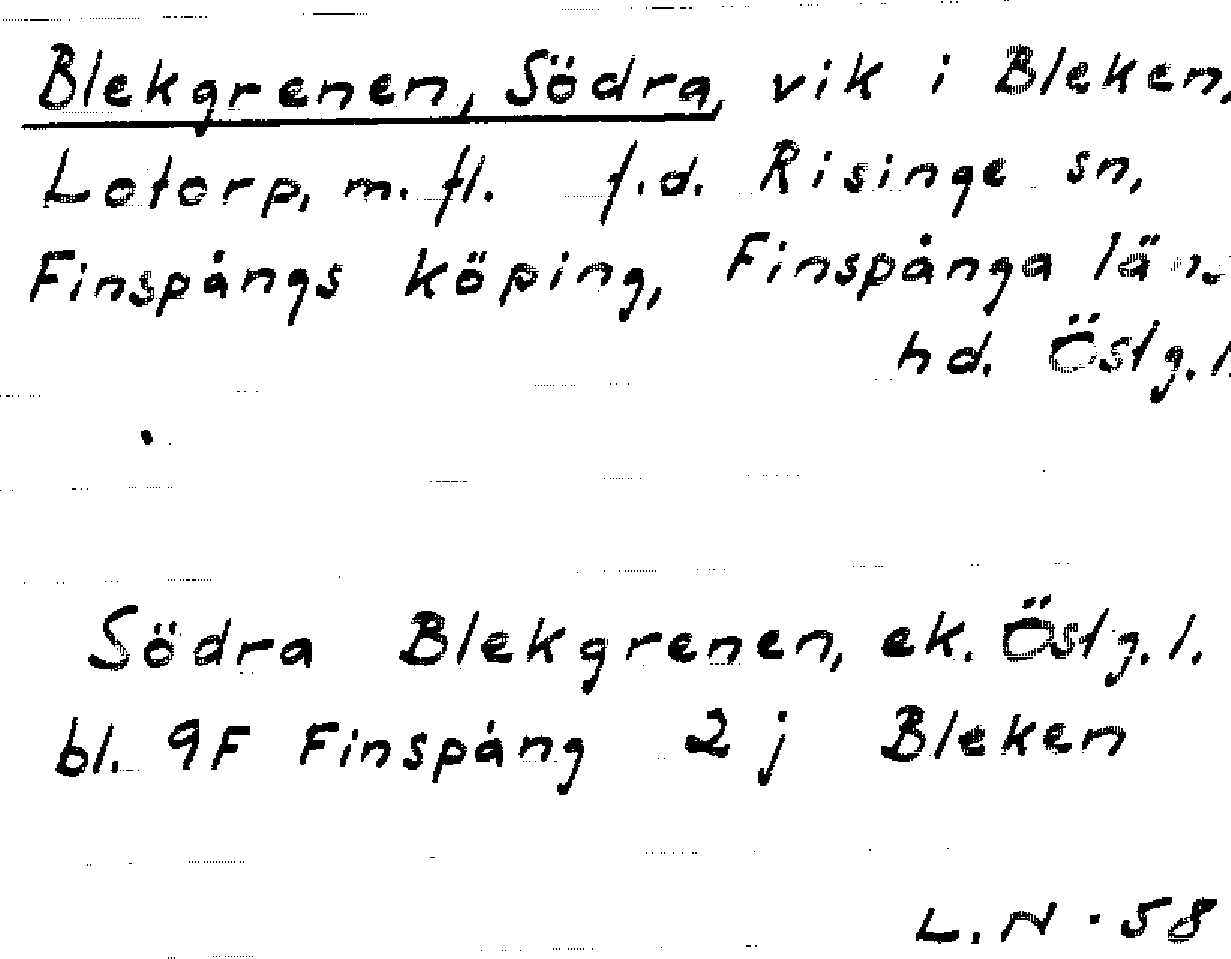 Blekgrenen, Södra, vik i Bleken,
Lotorp, m. fl. f.d. Risinge sn,
Finspångs köping, Finspånga läns
hd. Östg.l.
Södra Blekgrenen, ek. Östg.l.
bl. 9F Finspång 2 j Bleken
L. N. 58